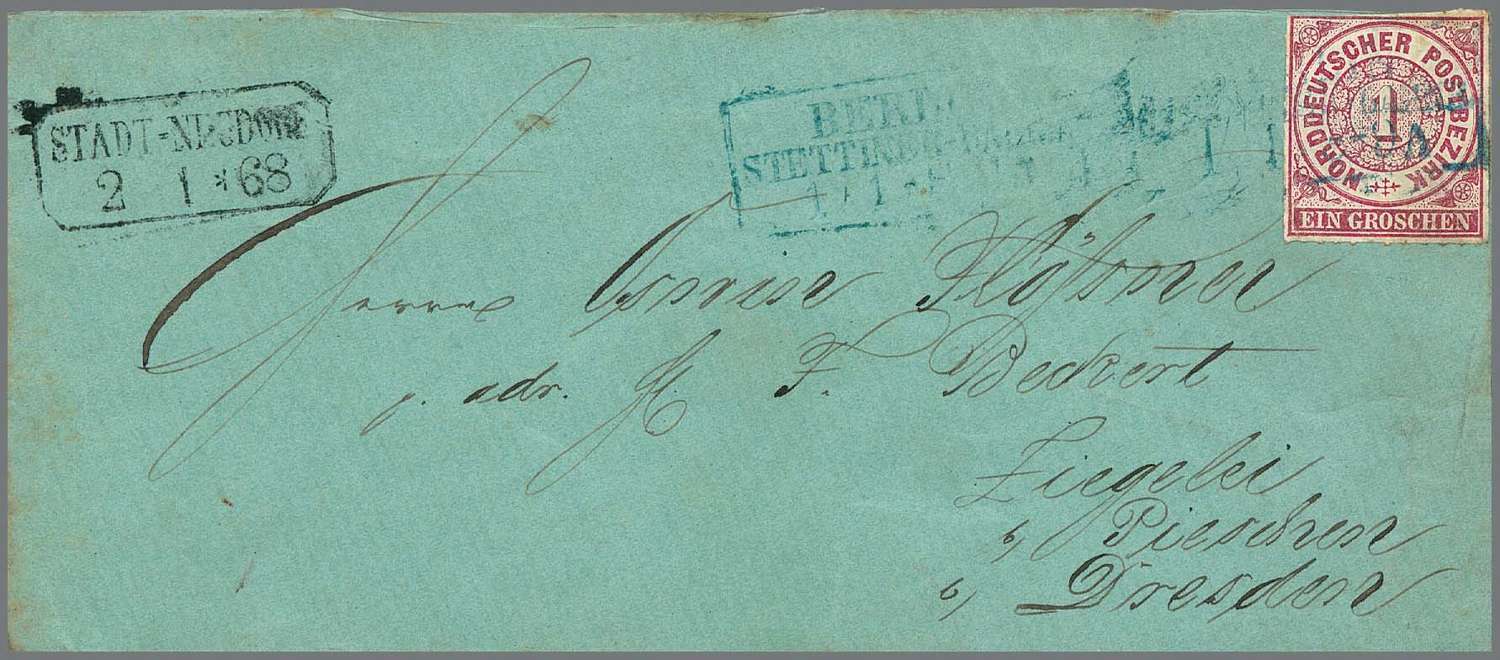 STADT-NEUDORF
2 1 * 68
STETTINER
NORDDEUTSCHER POSTBEZIRK
1
EIN GROSCHEN
Herrn Flößner
p. adr. F. Beckert
Ziegelei
b/ Pieschen
b/ Dresden